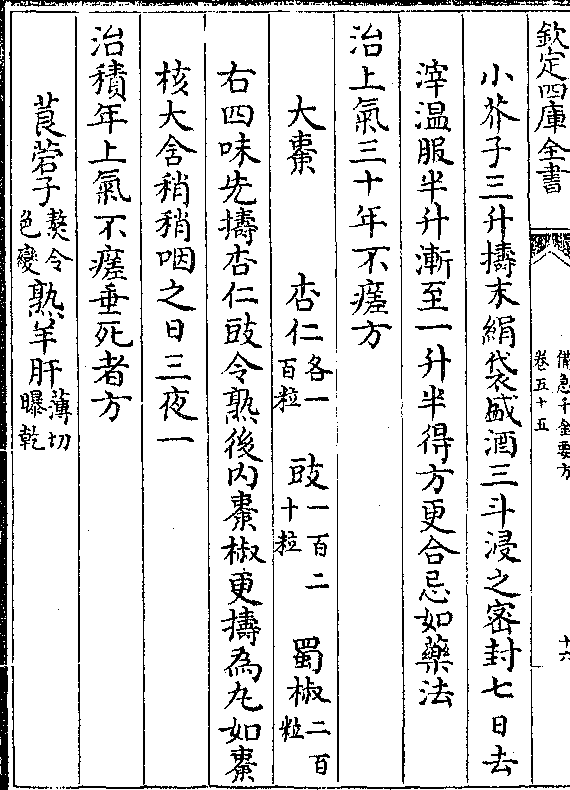 欽定四庫全書
備急千金要方
卷五十五
十六
小芥子三升擣末絹袋盛酒三斗浸之密封七日去
滓温服半升漸至一升半得方更合忌如藥法
治上氣三十年不瘥方
大棗 杏仁各一百粒 豉一百二十粒 蜀椒二百粒
右四味先擣杏仁豉令熟後内棗椒更擣為丸如棗
核大含稍稍咽之日三夜一
治積年上氣不瘥垂死者方
莨菪子熬令色變 熟羊肝薄切曝乾